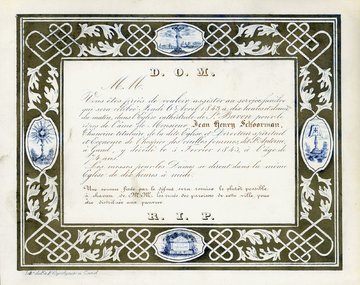 D. O. M.
M. M.
Vous êtes priés de vouloir assister au service funèbre
qui sera célébré Jeudi 6 Avril 1843, à dix heures
du matin, dans l'Eglise cathédrale de St. Bavon, pour le
repos de l'âme de Monsieur Jean Henry Schoorman,
Chanoine titulaire de la dite Eglise et Directeur spirituel
et de l'Hospice des vieilles femmes de St.
à Gand, y décédé le 3 Février 1843, à l'âge de
ans.
Les messes pour les Dames se diront dans la même
Eglise de dix heures à midi.
Une somme fixée par le défunt sera remise le plutôt possible
à chacun de M.M. les curés des paroisses de cette ville, pour
être distribuée aux pauvres.
R. I. P.
à Gand